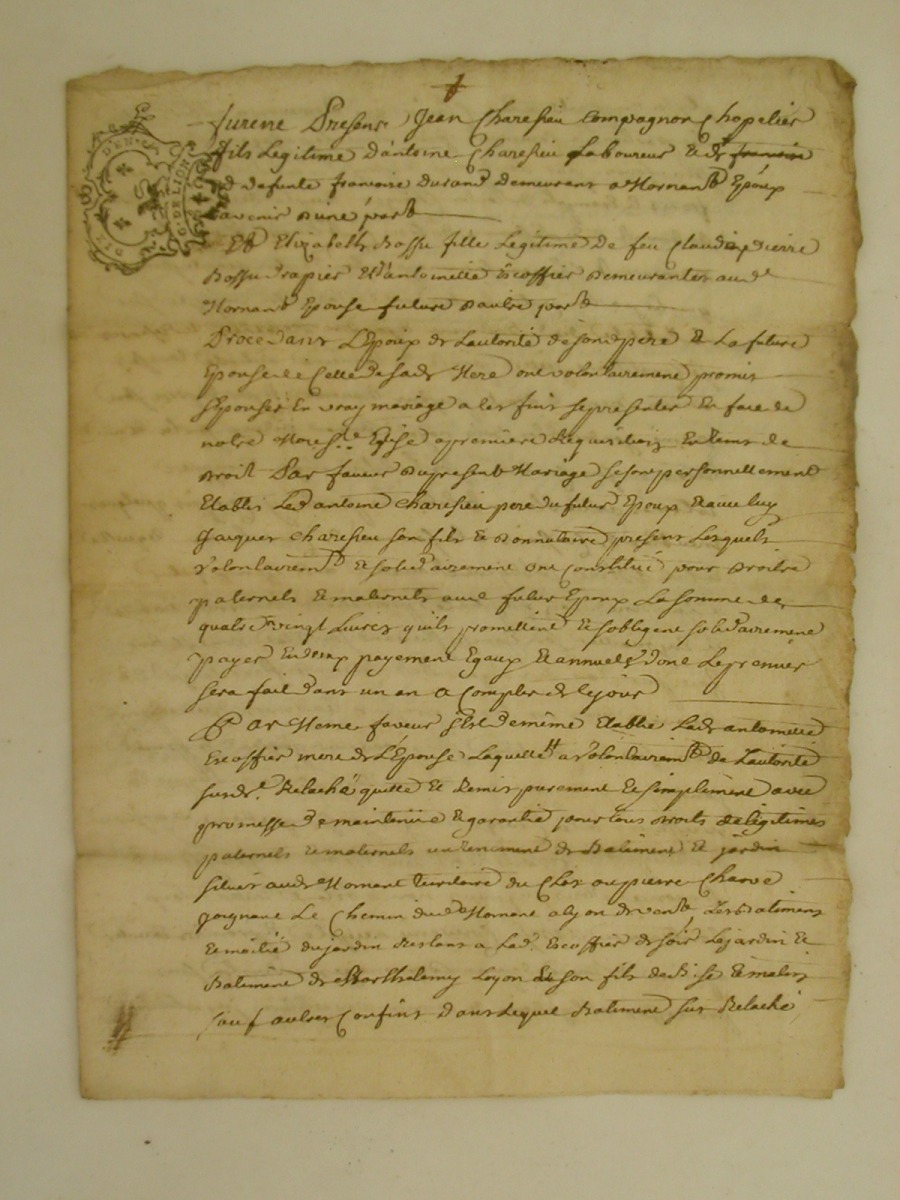 furent Presens Jean Charesieu Compagnon Chapelier
fils Legitime d'antoine Charesieu Laboureur & de francoise
et defunte francoise durand demeurant a Mornant Epoux
avenir d'une part
Et Elizabeth Bossu fille Legitime de feu Claude pierre
Bossu drapier Et d'antoinette Escoffier demeurantes aud
Mornant Epouse future d'autre part
Procedans L'Epoux de Lautorité de sond pere & La future
Epouse de Celle de sad Mere ont volontairement promis
s'Epouser En vray mariage a ces fins se presenter En face de
notre Mere Ste Eglise a premiere Requisition Ex tems de
droit Par faveur du present Mariage se sont personnellement
Etablis Led antoine Charesieu pere du futur Epoux Et avec luy
Jacques Charesieu son fils & donnataire present Lesquels
volontairemt & solidairement ont Constitué pour droits
paternels & maternels aud futur Epoux La somme de
quatre vingt Livres qu'ils promettent & s'obligent solidairement
payer En deux payement Egaux Et annuels dont Le premier
sera fait dans un an a Compter de Ce jour
Par Meme faveur s'Est de même Etablie Lade antoinette
Escoffier mere de L'Epouse Laquelle a volontairemt de Lautorité
susde Relaché quitté Et Remis purement & simplement avec
promesse de maintenüe & garantie pour tous droits de légitimes
paternels & maternels un tenement de Batiment Et jardin
situés aud Mornant territoire du Clos ou pierre Charve
joignant Le Chemin dud Mornant a Lyon de vent, Les Batimens
& moitié du jardin Restans a Lade Escoffier de soir Le jardin &
Batiment de Barthelemy Loyon & son fils de Bise & matin
sauf autres Confins dans Lequel Batiment sus Relaché
G. DE LION